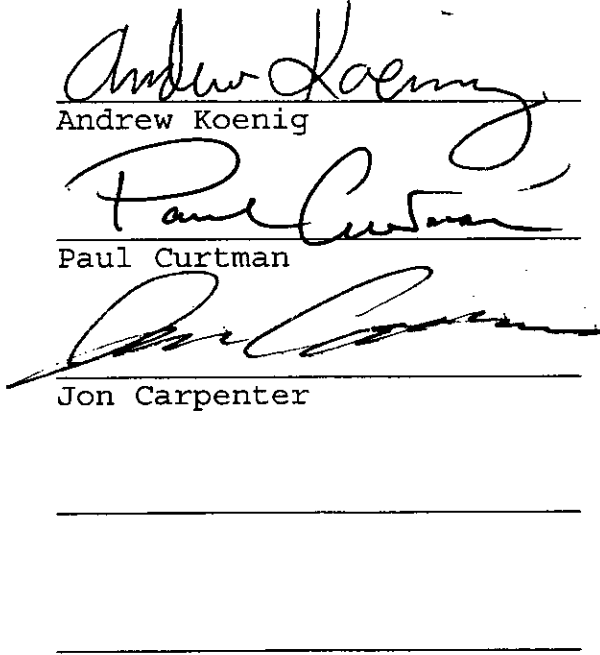 Andrew Koenig
Andrew Koenig
Paul Curtman
Paul Curtman
Jon Carpenter